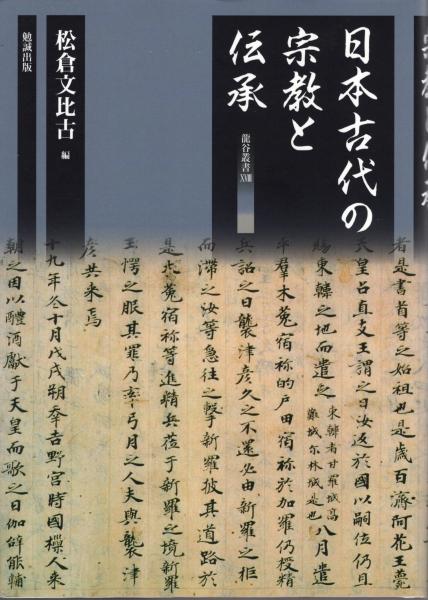 日本古代の
宗教と
伝承
龍谷叢書 XVIII
松倉文比古 編
勉誠出版
者是書首等之始祖也是歳百濟阿花王薨
天皇召直支王謂之曰汝返於國以嗣位仍且
賜東韓之地而遣之 東韓者甘羅城高
難城尓林城是也 八月遣
平群木菟宿祢的戸田宿祢於加羅仍授精
兵詔之曰襲津彦久之不還必由新羅之拒
而滞之汝等急往之撃新羅披其道路於
是木菟宿祢等進精兵莅于新羅之境新羅
王愕之服其罪乃率弓月之人夫與襲津
彦共来焉
十九年冬十月戊戌朔幸吉野宮時國樔人来
朝之因以醴酒獻于天皇而歌之曰伽辞能輔